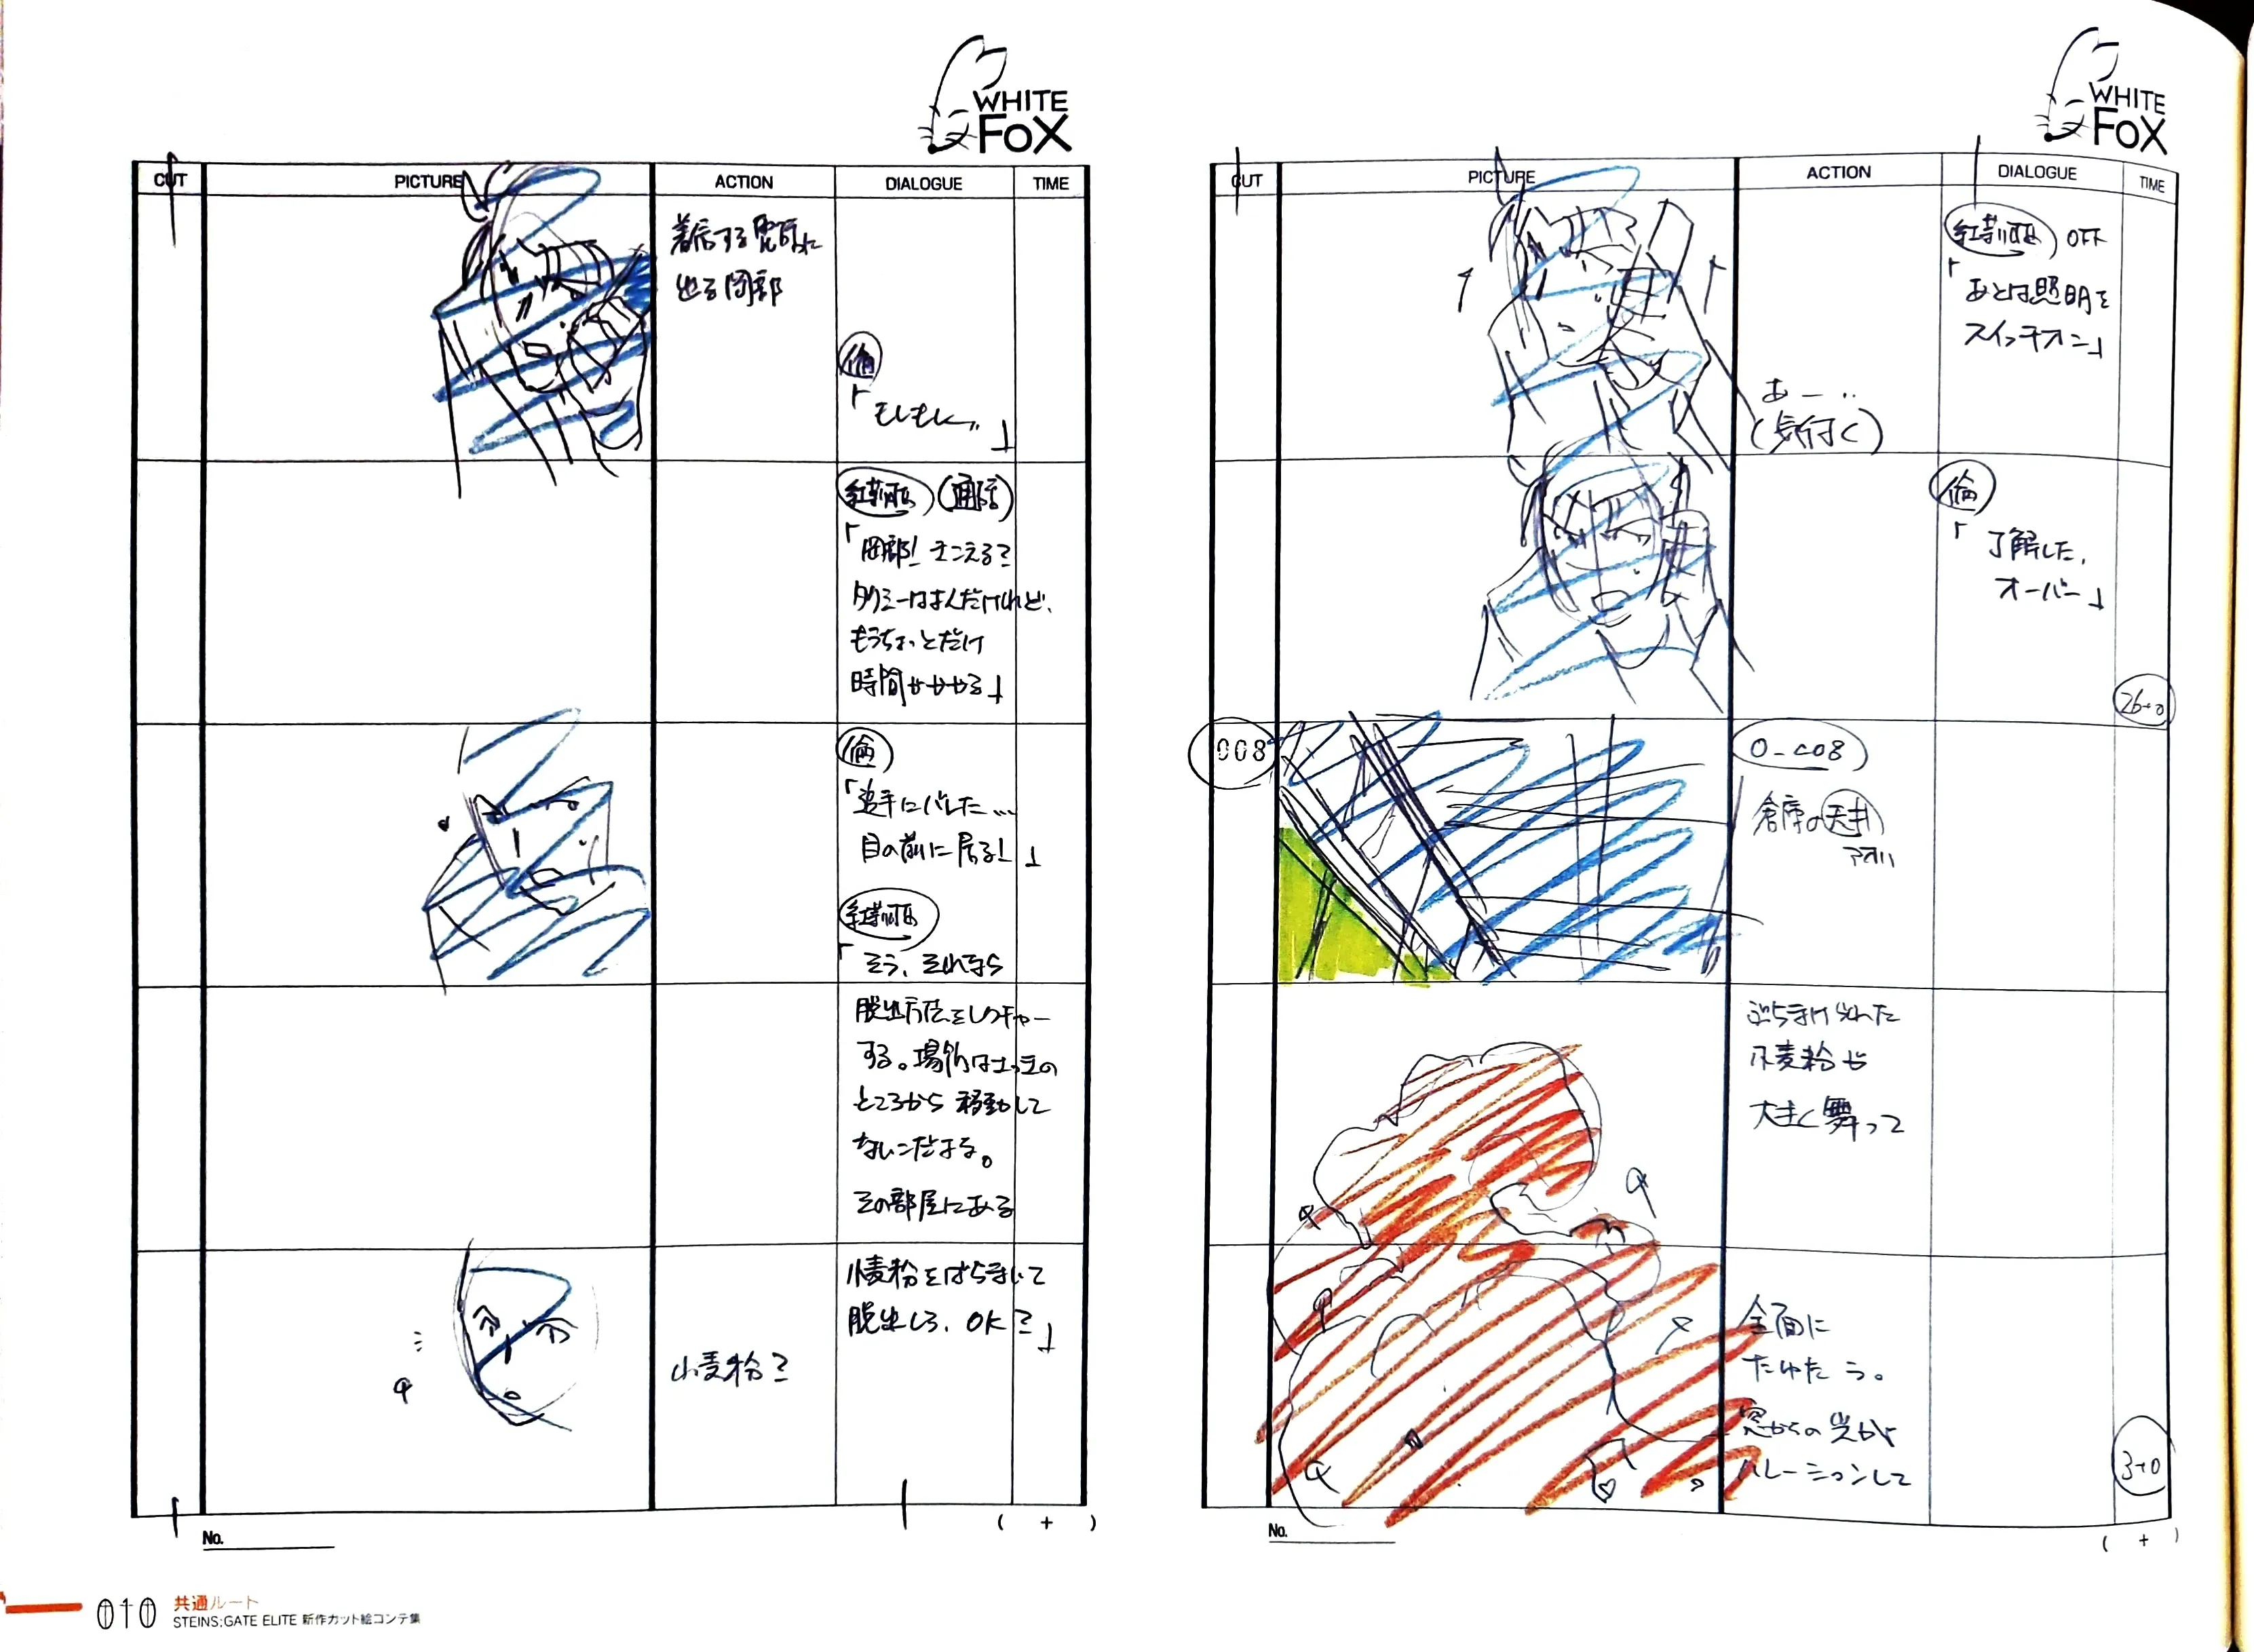 WHITE
FOX
CUT
PICTURE
ACTION
DIALOGUE
TIME
着信する電話に
出る岡部
倫
「もしもし…」
紅莉栖 (通話)
「岡部！きこえる？
タイミーはよんだけれど、
もうちょっとだけ
時間がかかる」
倫
「追手にバレた…
目の前に居る！」
紅莉栖
「そう、それなら
脱出方法をレクチャー
する。場所はさっきの
ところから移動して
ないことだよる。
その部屋にある
小麦粉？
小麦粉をばらまいて
脱出しろ、OK？」
No.
( + )
010
共通ルート
STEINS;GATE ELITE 新作カット絵コンテ集
WHITE
FOX
CUT
PICTURE
ACTION
DIALOGUE
TIME
紅莉栖 OFF
「あとは照明を
スイッチオン」
あー‥
(気付く)
倫
「了解した、
オーバー」
26+0
008
0-c08
倉庫の天井
アオリ
ぶちまけられた
小麦粉が
大きく舞って
全面に
たゆたう。
窓からの光が
ハレーションして
3+0
No.
( + )